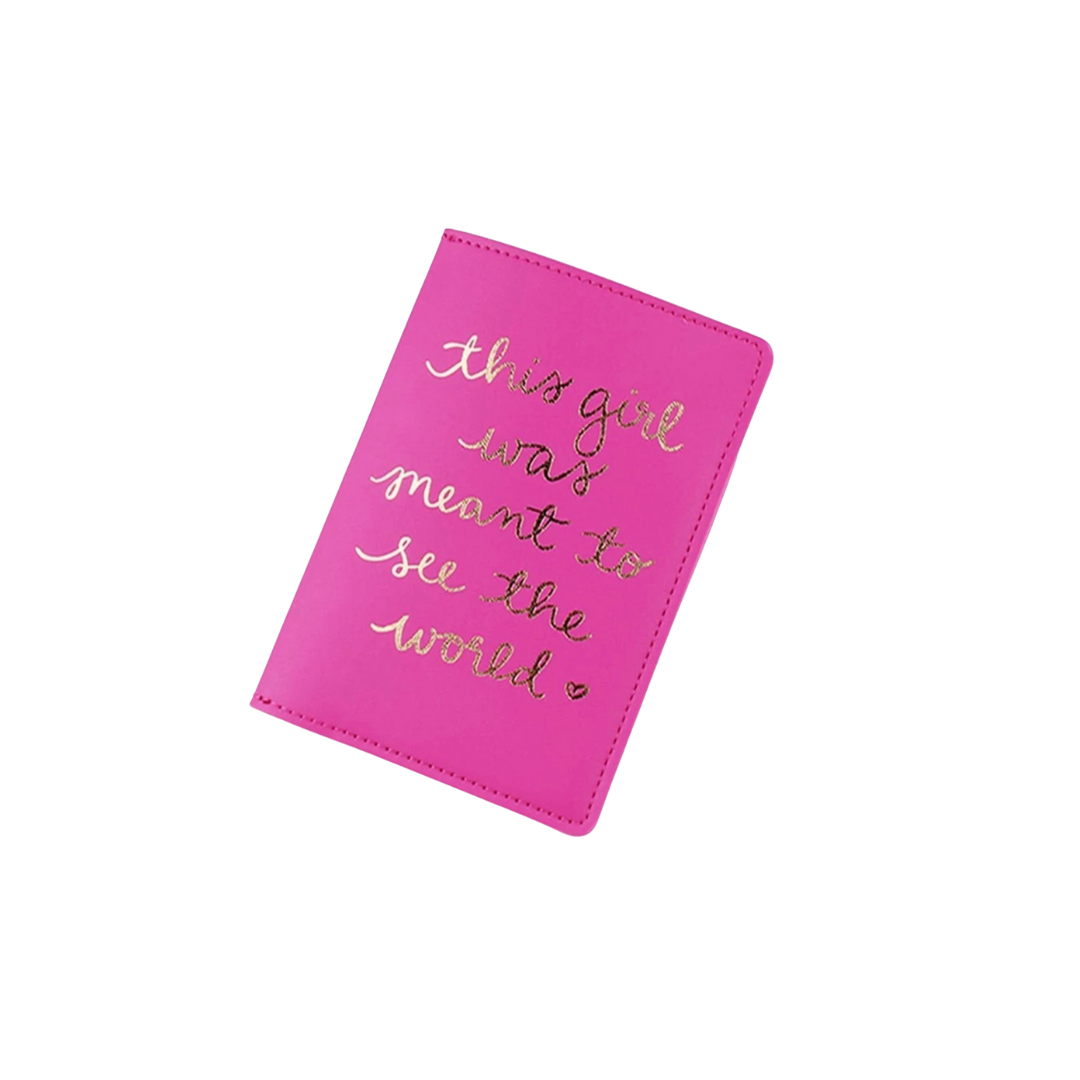 this girl
was
meant to
see the
world